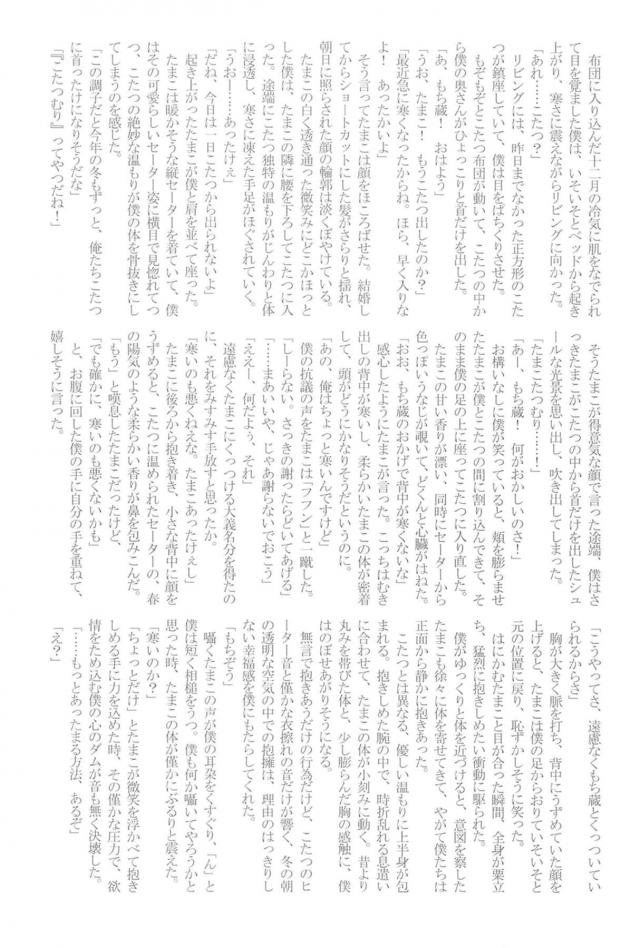 布団に入り込んだ十二月の冷気に肌をなでられ
て目を覚ました僕は、いそいそとベッドから起き
上がり、寒さに震えながらリビングに向かった。
「あれ……こたつ？」
　リビングには、昨日までなかった正方形のこた
つが鎮座していて、僕は目をぱちくりさせた。
　もぞもぞとこたつ布団が動いて、こたつの中か
ら僕の奥さんがひょっこりと首だけを出した。
「あ、もち蔵！　おはよう」
「うお、たまこ！　もうこたつ出したのか？」
「最近急に寒くなったからね。ほら、早く入りな
よ！　あったかいよ」
　そう言ってたまこは顔をほころばせた。結婚し
てからショートカットにした髪がさらりと揺れ、
朝日に照らされた顔の輪郭は淡くぼやけている。
　たまこの白く透き通った微笑みにどこかほっと
した僕は、たまこの隣に腰を下ろしてこたつに入
った。途端にこたつ独特の温もりがじんわりと体
に浸透し、寒さに凍えた手足がほぐされていく。
「うおー……あったけぇ」
「だね、今日は一日こたつから出られないよ」
　起き上がったたまこが僕と肩を並べて座った。
　たまこは暖かそうな縦セーターを着ていて、僕
はその可愛らしいセーター姿に横目で見惚れてつ
つ、こたつの絶妙な温もりが僕の体を骨抜きにし
てしまうのを感じた。
「この調子だと今年の冬もずっと、俺たちこたつ
に首ったけになりそうだな」
「『こたつむり』ってやつだね！」
　そうたまこが得意気な顔で言った途端、僕はさ
っきたまこがこたつの中から首だけを出したシュ
ールな光景を思い出し、吹き出してしまった。
「たまこたつむり……！」
「あー、もち蔵！　何がおかしいのさ！」
　お構いなしに僕が笑っていると、頬を膨らませ
たたまこが僕とこたつの間に割り込んできて、そ
のまま僕の足の上に座ってこたつに入り直した。
　たまこの甘い香りが漂い、同時にセーターから
色っぽいうなじが覗いて、どくんと心臓がはねた。
「おお、もち蔵のおかげで背中が寒くないな」
　感心したようにたまこが言った。こっちはむき
出しの背中が寒いし、柔らかいたまこの体が密着
して、頭がどうにかなりそうだというのに。
「あの、俺はちょっと寒いんですけど」
　僕の抗議の声をたまこは「フフン」と一蹴した。
「しーらない。さっきの謝ったらどいてあげる」
「……まあいいや、じゃあ謝らないでおこう」
「ええー、何だよぅ、それ」
　遠慮なくたまこにくっつける大義名分を得たの
に、それをみすみす手放すと思ったか。
「寒いのも悪くねえな。たまこあったけぇし」
　たまこに後ろから抱き着き、小さな背中に顔を
うずめると、こたつに温められたセーターの、春
の陽気のような柔らかい香りが鼻を包みこんだ。
「もう」と嘆息したたまこだったけど、
「でも確かに、寒いのも悪くないかも」
　と、お腹に回した僕の手に自分の手を重ねて、
嬉しそうに言った。
「こうやってさ、遠慮なくもち蔵とくっついてい
られるからさ」
　胸が大きく脈を打ち、背中にうずめていた顔を
上げると、たまこは僕の足からおりていそいそと
元の位置に戻り、恥ずかしそうに笑った。
　はにかむたまこと目が合った瞬間、全身が粟立
ち、猛烈に抱きしめたい衝動に駆られた。
　僕がゆっくりと体を近づけると、意図を察した
たまこも徐々に体を寄せてきて、やがて僕たちは
正面から静かに抱きあった。
　こたつとは異なる、優しい温もりに上半身が包
まれる。抱きしめた腕の中で、時折乱れる息遣い
に合わせて、たまこの体が小刻みに動く。昔より
丸みを帯びた体と、少し膨らんだ胸の感触に、僕
はのぼせあがりそうになる。
　無言で抱きあうだけの行為だけど、こたつのヒ
ーター音と僅かな衣擦れの音だけが響く、冬の朝
の透明な空気の中での抱擁は、理由のはっきりし
ない幸福感を僕にもたらしてくれた。
「もちぞう」
　囁くたまこの声が僕の耳朶をくすぐり、「ん」と
僕は短く相槌をうつ。僕も何か囁いてやろうかと
思った時、たまこの体が僅かにぶるりと震えた。
「寒いのか？」
「ちょっとだけ」とたまこが微笑を浮かべて抱き
しめる手に力を込めた時、その僅かな圧力で、欲
情をため込む僕の心のダムが音も無く決壊した。
「……もっとあったまる方法、あるぞ」
「え？」